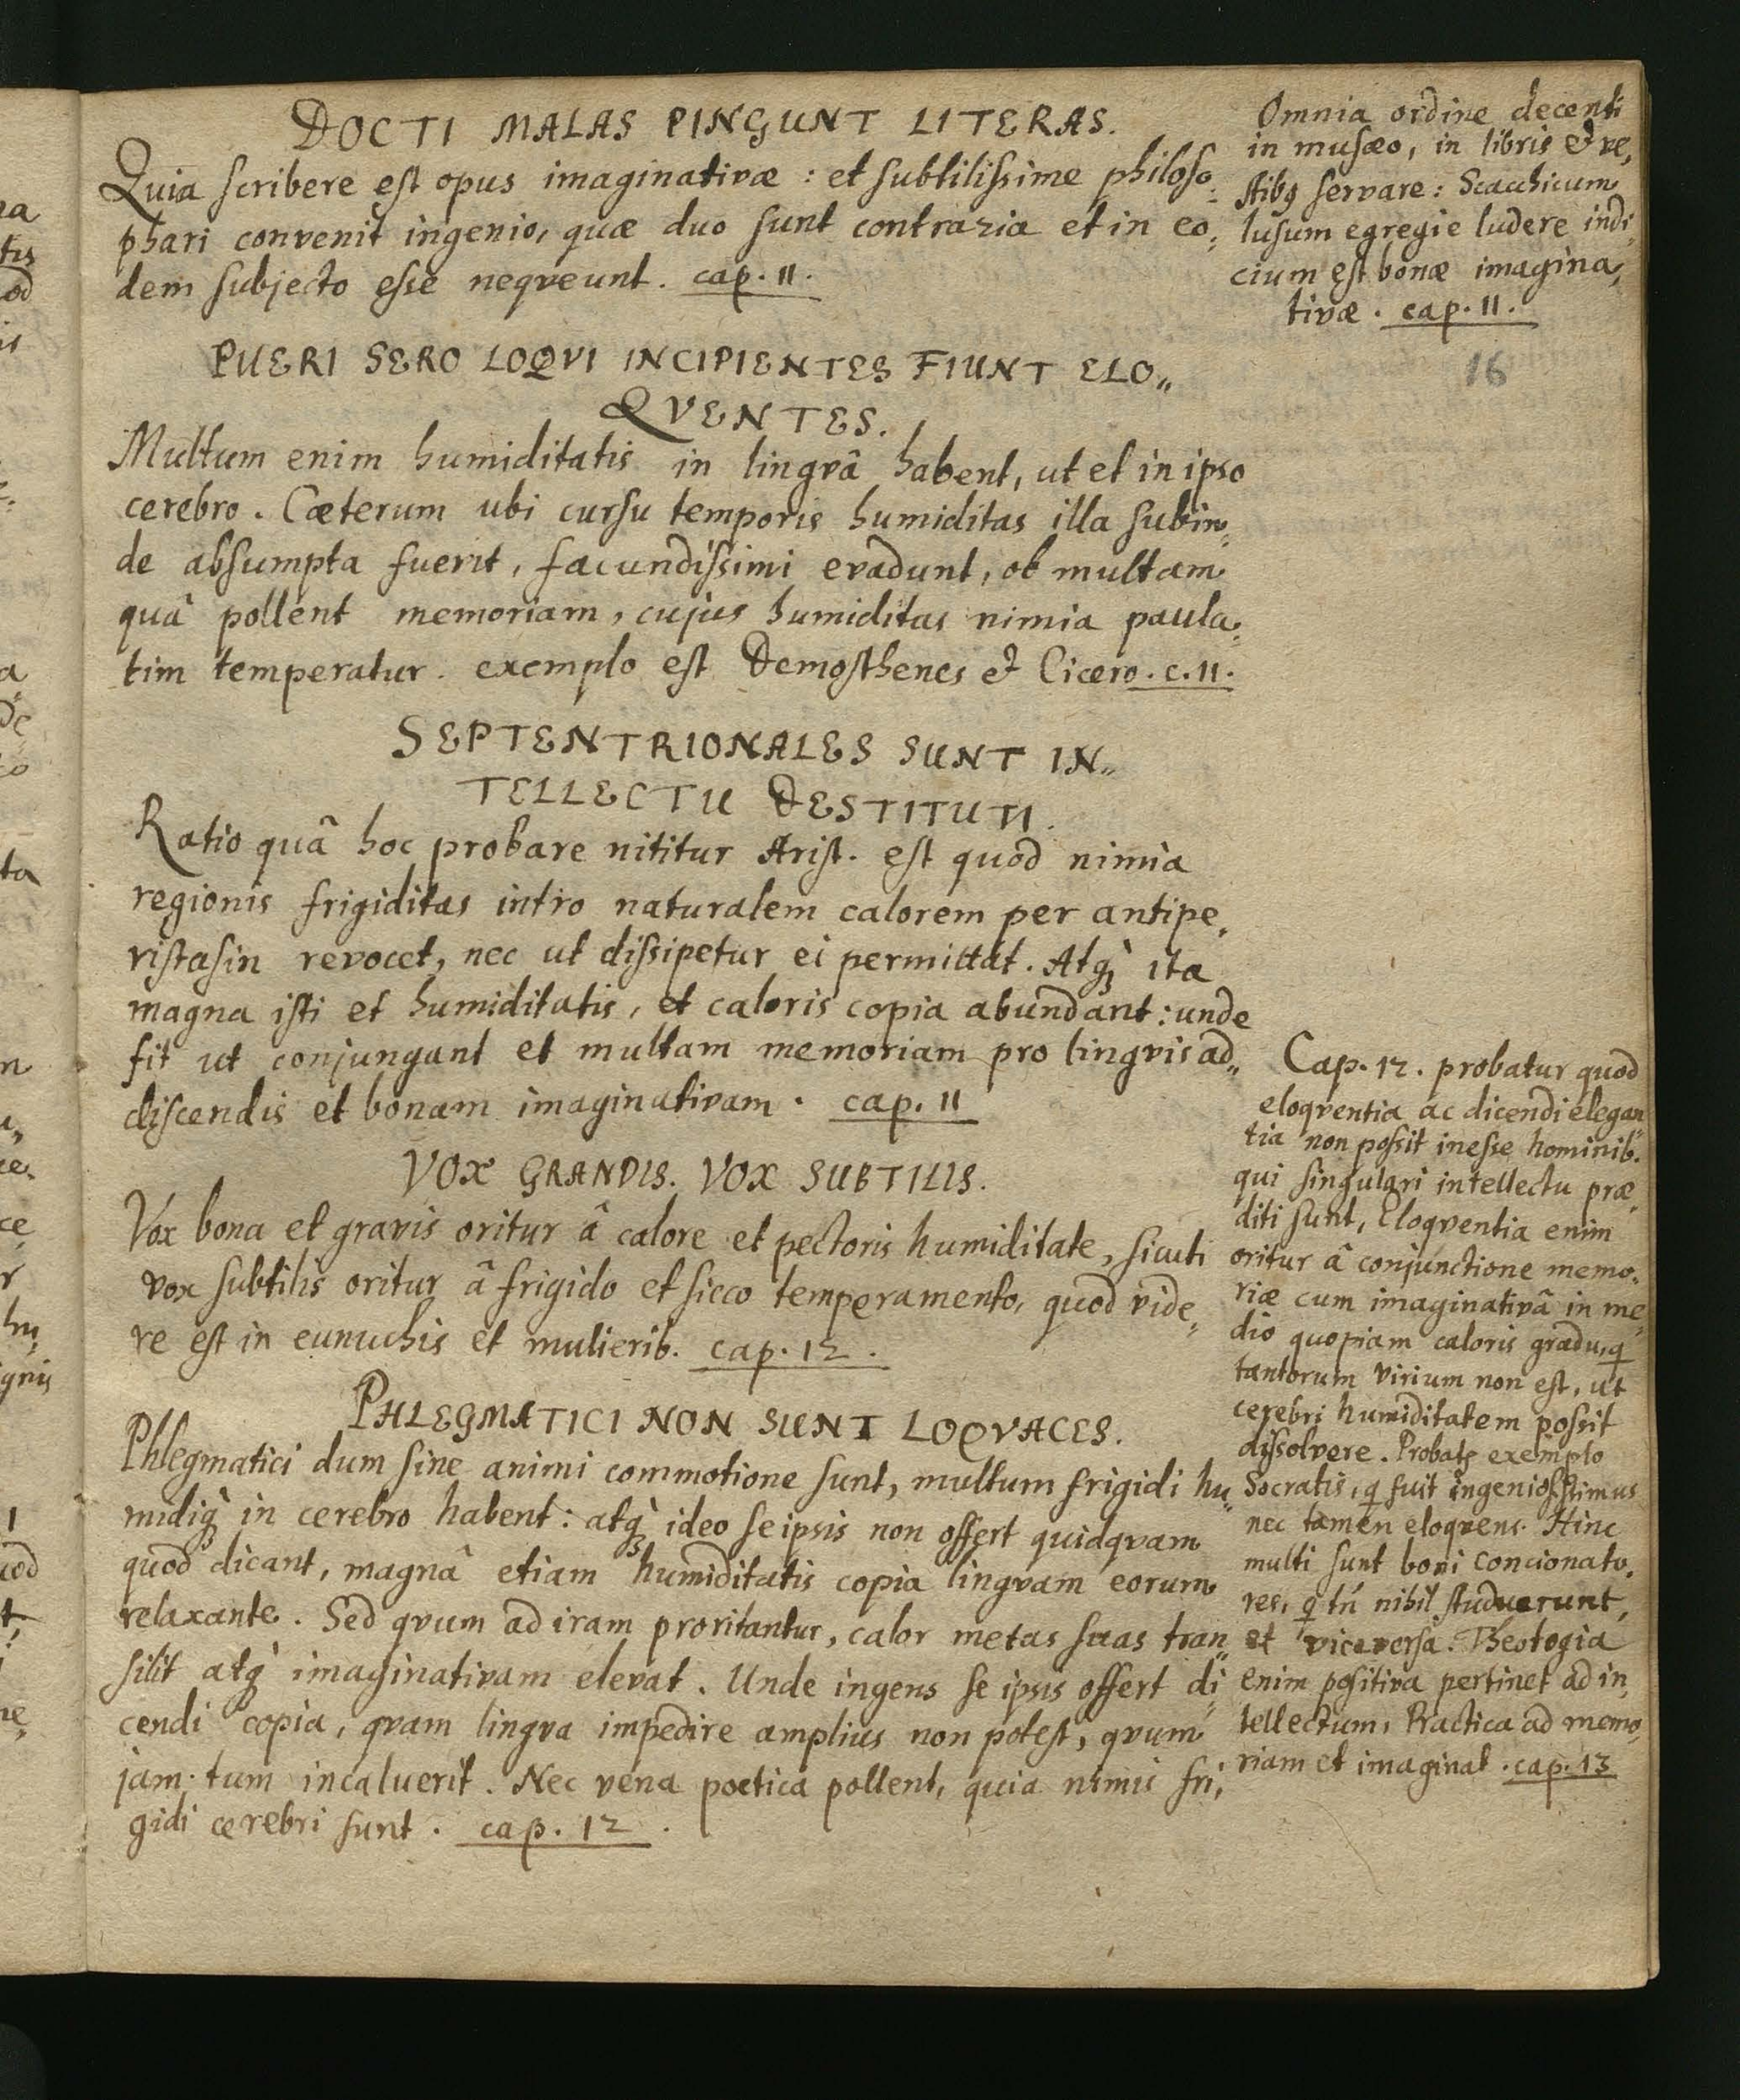 DOCTI MALAS PINGUNT LITERAS.
Quia scribere est opus imaginativæ: et subtilissime philoso-
phari convenit ingenio, quæ duo sunt contraria et in eo-
dem subjecto esse neqveunt. cap. 11.
PUERI SERO LOQVI INCIPIENTES FIUNT ELO„
QVENTES.
Multum enim humiditatis in lingvâ habent, ut et in ipso
cerebro. Cæterum ubi cursu temporis humiditas illa subin-
de absumpta fuerit, facundissimi evadunt, ob multam
quâ pollent memoriam, cujus humiditas nimia paula-
tim temperatur. exemplo est Demosthenes & Cicero. c. 11.
SEPTENTRIONALES SUNT IN„
TELLECTU DESTITUTI.
Ratio quâ hoc probare nititur Arist. est quod nimia
regionis frigiditas intro naturalem calorem per antipe,
ristasin revocet, nec ut dissipetur ei permittat. Atq; ita
magna isti et humiditatis, et caloris copia abundant: unde
fit ut conjungant et multam memoriam pro lingvis ad„
discendis et bonam imaginativam. cap. 11
VOX GRANDIS. VOX SUBTILIS.
Vox bona et gravis oritur â calore et pectoris humiditate, sicuti
vox subtilis oritur â frigido et sicco temperamento, quod vide,
re est in eunuchis et mulierib. cap. 12.
PHLEGMATICI NON SUNT LOQVACES.
Phlegmatici dum sine animi commotione sunt, multum frigidi hu„
midiq; in cerebro habent: atq; ideo seipsis non offert quidqvam
quod dicant, magnâ etiam humiditatis copia lingvam eorum
relaxante. Sed qvum ad iram proritantur, calor metas suas tran„
silit atq; imaginativam elevat. Unde ingens se ipsis offert di
cendi copia, qvam lingva impedire amplius non potest, qvum
jam tum incaluerit. Nec vena poetica pollent, quia nimis fri,
gidi cerebri sunt. cap. 12.
Omnia ordine decenti
in musæo, in libris & ve,
stibꝫ servare: Scacchicum
lusum egregie ludere indi,
cium est bonæ imagina,
tivæ. cap. 11.
16
Cap. 12. probatur quod
eloqventia ac dicendi elegan
tia non possit inesse hominib.
qui singulari intellectu præ,
diti sunt, Eloqventia enim
oritur â conjunctione memo,
riæ cum imaginativâ in me
dio quopiam caloris gradu, q
tantorum virium non est, ut
cerebri humiditatem possit
dissolvere. Probatꝫ exemplo
Socratis, q fuit ingeniosissimus
nec tamen eloqvens. Hinc
multi sunt boni concionato,
res, q tñ nihil studuerunt,
et viceversa. Theologia
enim positiva pertinet ad in,
tellectum, Practica ad memo,
riam et imaginat. cap. 13